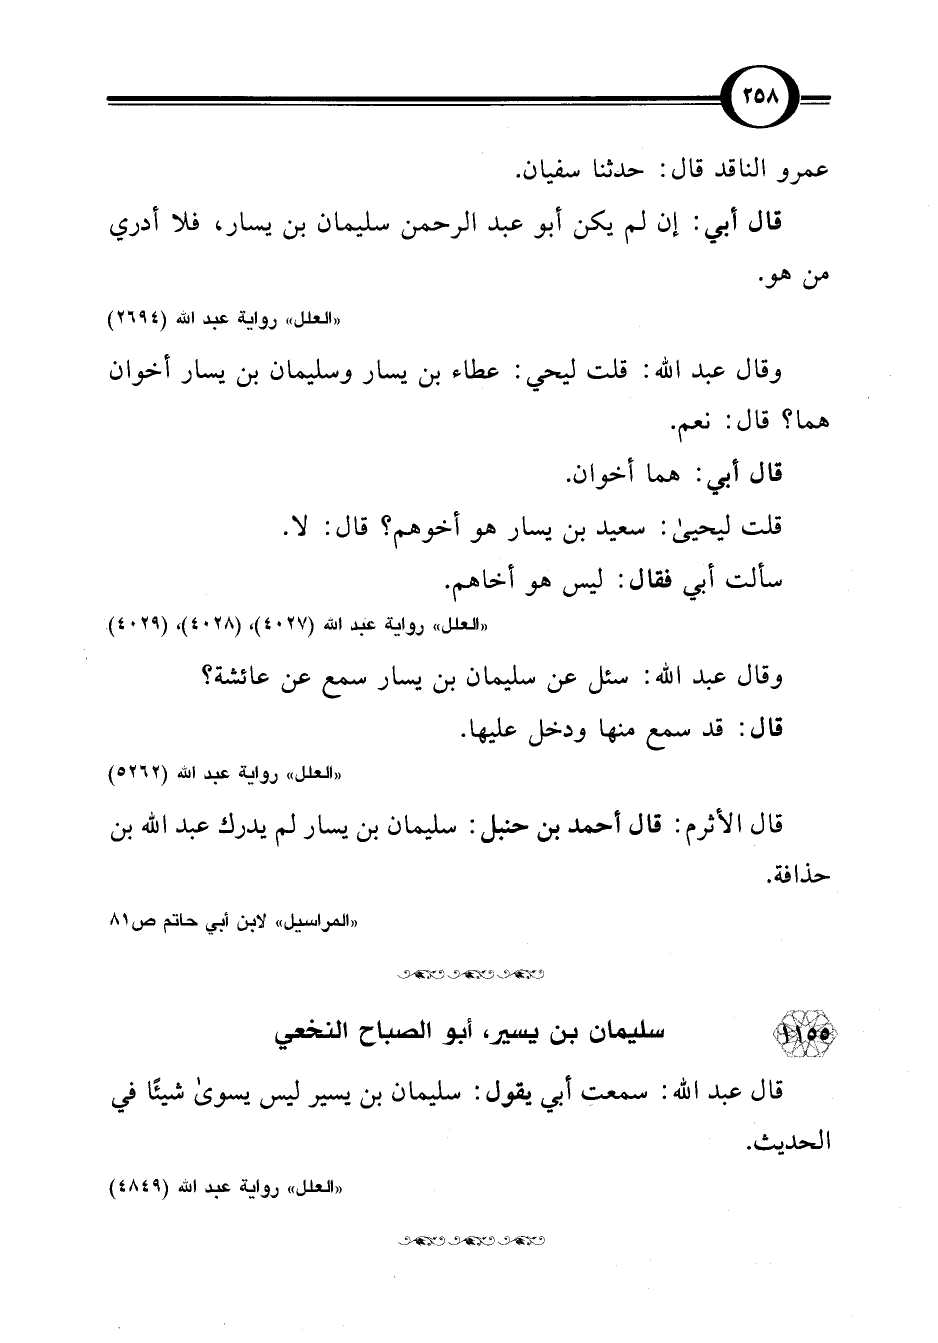 ٢٥٨
عمرو الناقد قال: حدثنا سفيان.
قال أبي: إن لم يكن أبو عبد الرحمن سليمان بن يسار، فلا أدري
من هو.
«العلل» رواية عبد الله (٢٦٩٤)
وقال عبد الله: قلت ليحي: عطاء بن يسار وسليمان بن يسار أخوان
هما؟ قال: نعم.
قال أبي: هما أخوان.
قلت ليحيىٰ: سعيد بن يسار هو أخوهم؟ قال: لا.
سألت أبي فقال: ليس هو أخاهم.
«العلل» رواية عبد الله (٤٠٢٧)، (٤٠٢٨)، (٤٠٢٩)
وقال عبد الله: سئل عن سليمان بن يسار سمع عن عائشة؟
قال: قد سمع منها ودخل عليها.
«العلل» رواية عبد الله (٥٢٦٢)
قال الأثرم: قال أحمد بن حنبل: سليمان بن يسار لم يدرك عبد الله بن
حذافة.
«المراسيل» لابن أبي حاتم ص٨١
١١٥٥ سليمان بن يسير، أبو الصباح النخعي
قال عبد الله: سمعت أبي يقول: سليمان بن يسير ليس يسوىٰ شيئًا في
الحديث.
«العلل» رواية عبد الله (٤٨٤٩)